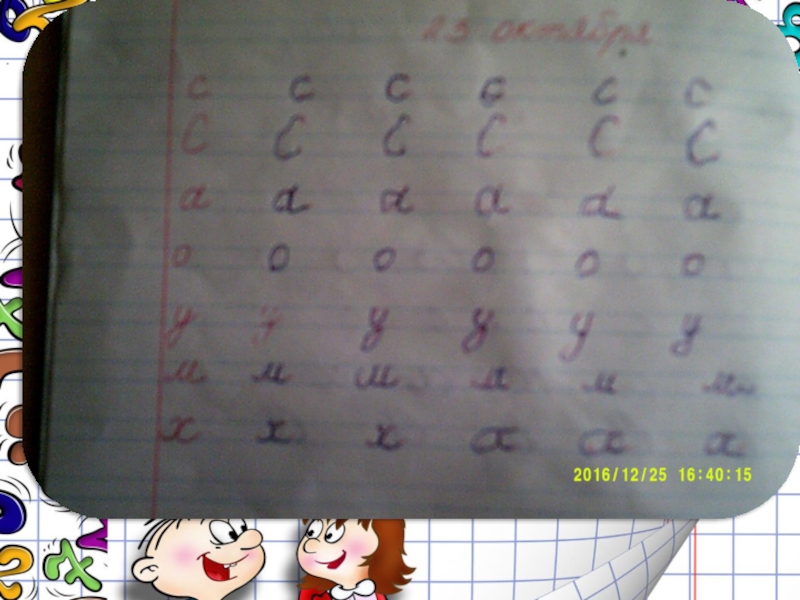 25 октября
с с с с с с
С С С С С С
а а а а а а
о о о о о о
у у у у у у
м м м м м м
х х х а а а
2016/12/25 16:40:15